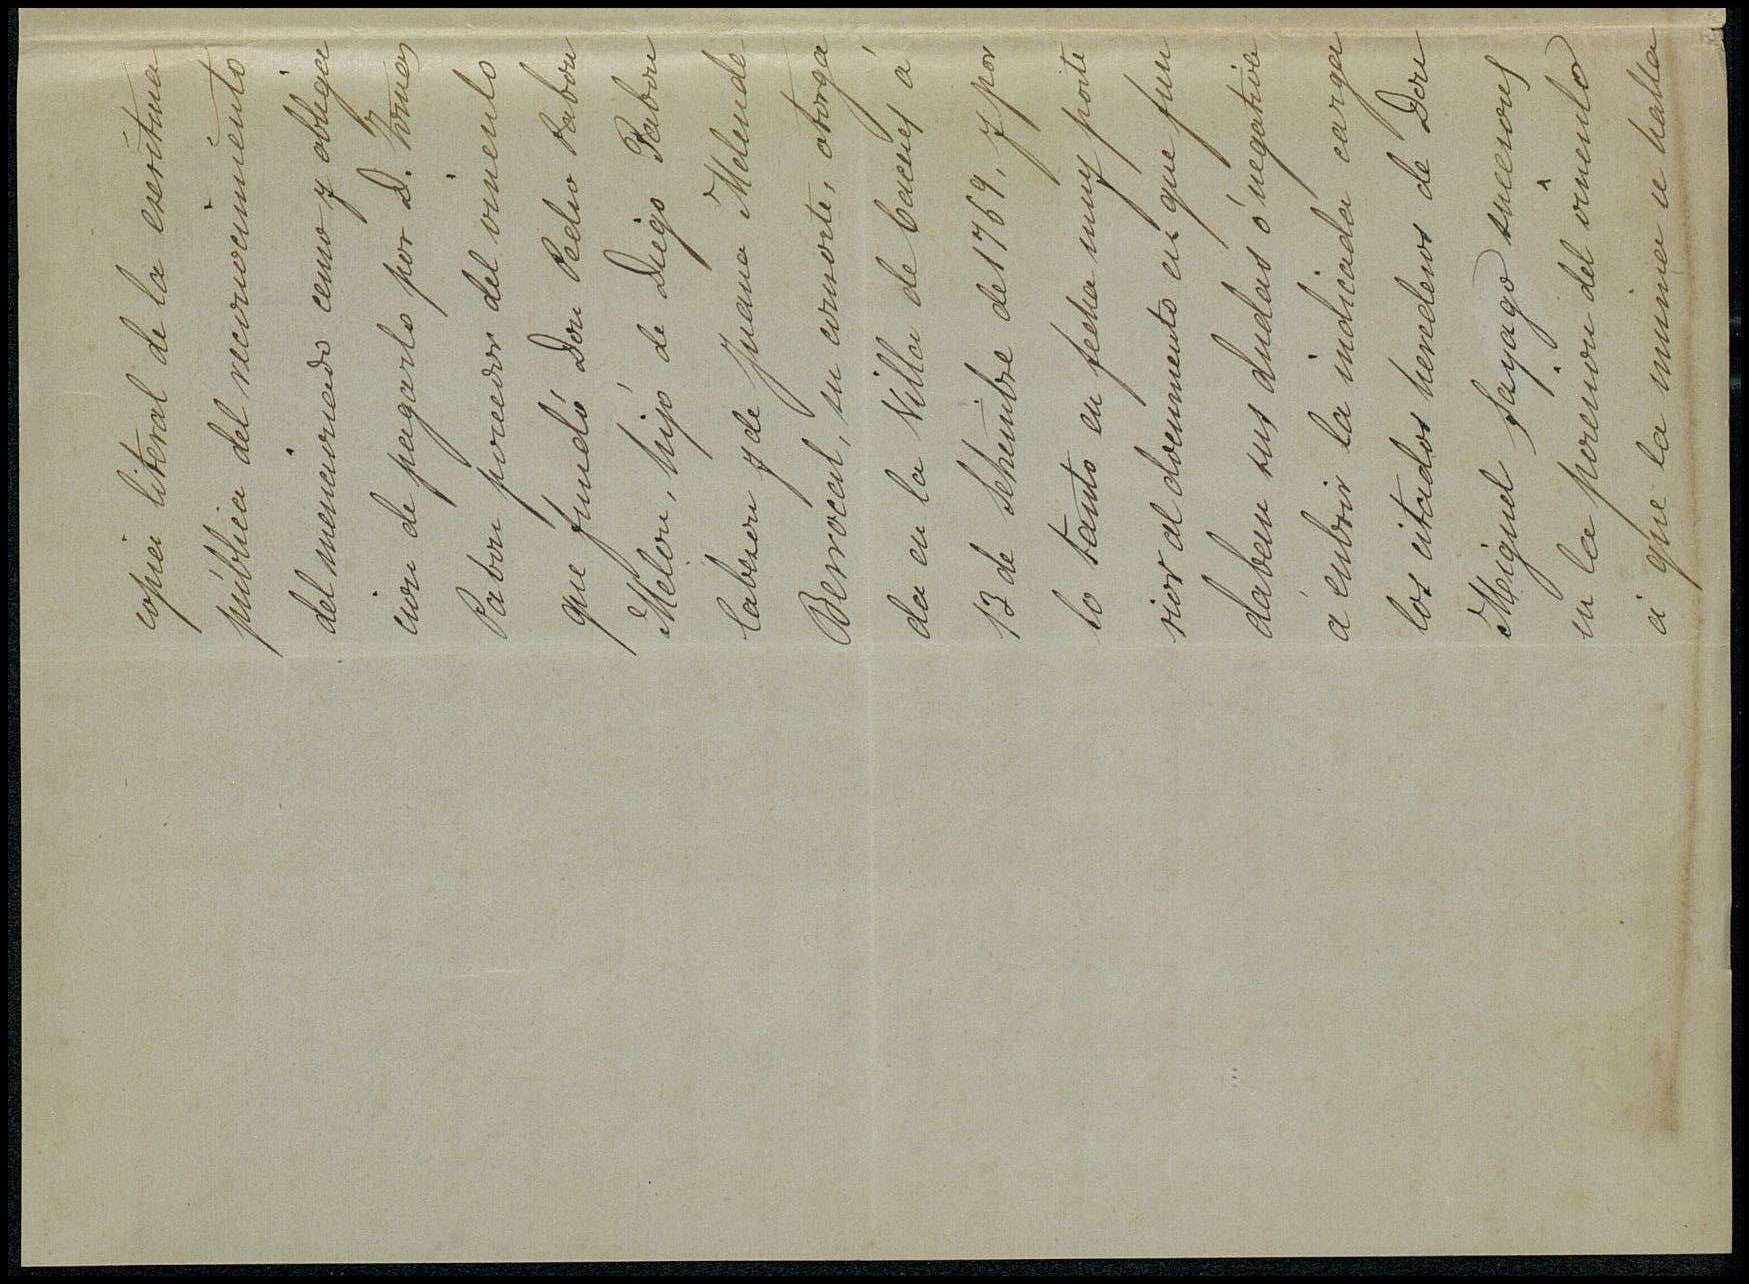 copia literal de la escritura
pública del reconocimiento
del mencionado censo y obliga
cion de pagarlo por D. Tomas
Pabon poseedor del vinculo
que fundó Don Pedro Pabon
Melon, hijo de Diego Pabon
Cabezon y de Juana Melende
Berrocal, su consorte, otorga
da en la Villa de Caceres á
13 de Setiembre de 1769, y por
lo tanto en fecha muy poste
rior al documento en que fun
daben sus dudas ó negativa
á cubrir la indicada carga
los citados herederos de Don
Miguel Sayago sucesores
en la posesion del vinculo
á que la misma se halla